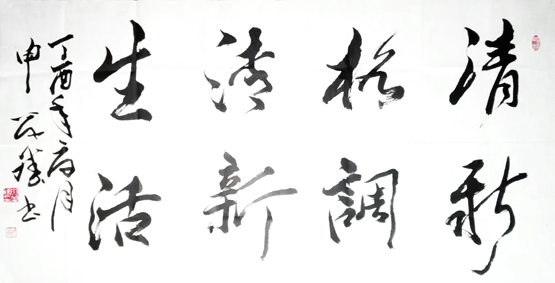 清新
格調
清新
生活
丁酉年月
申书